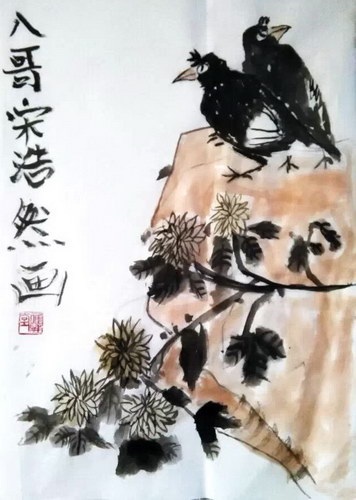 八哥宋浩然画